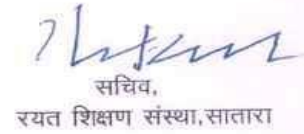 सचिव,
रयत शिक्षण संस्था,सातारा